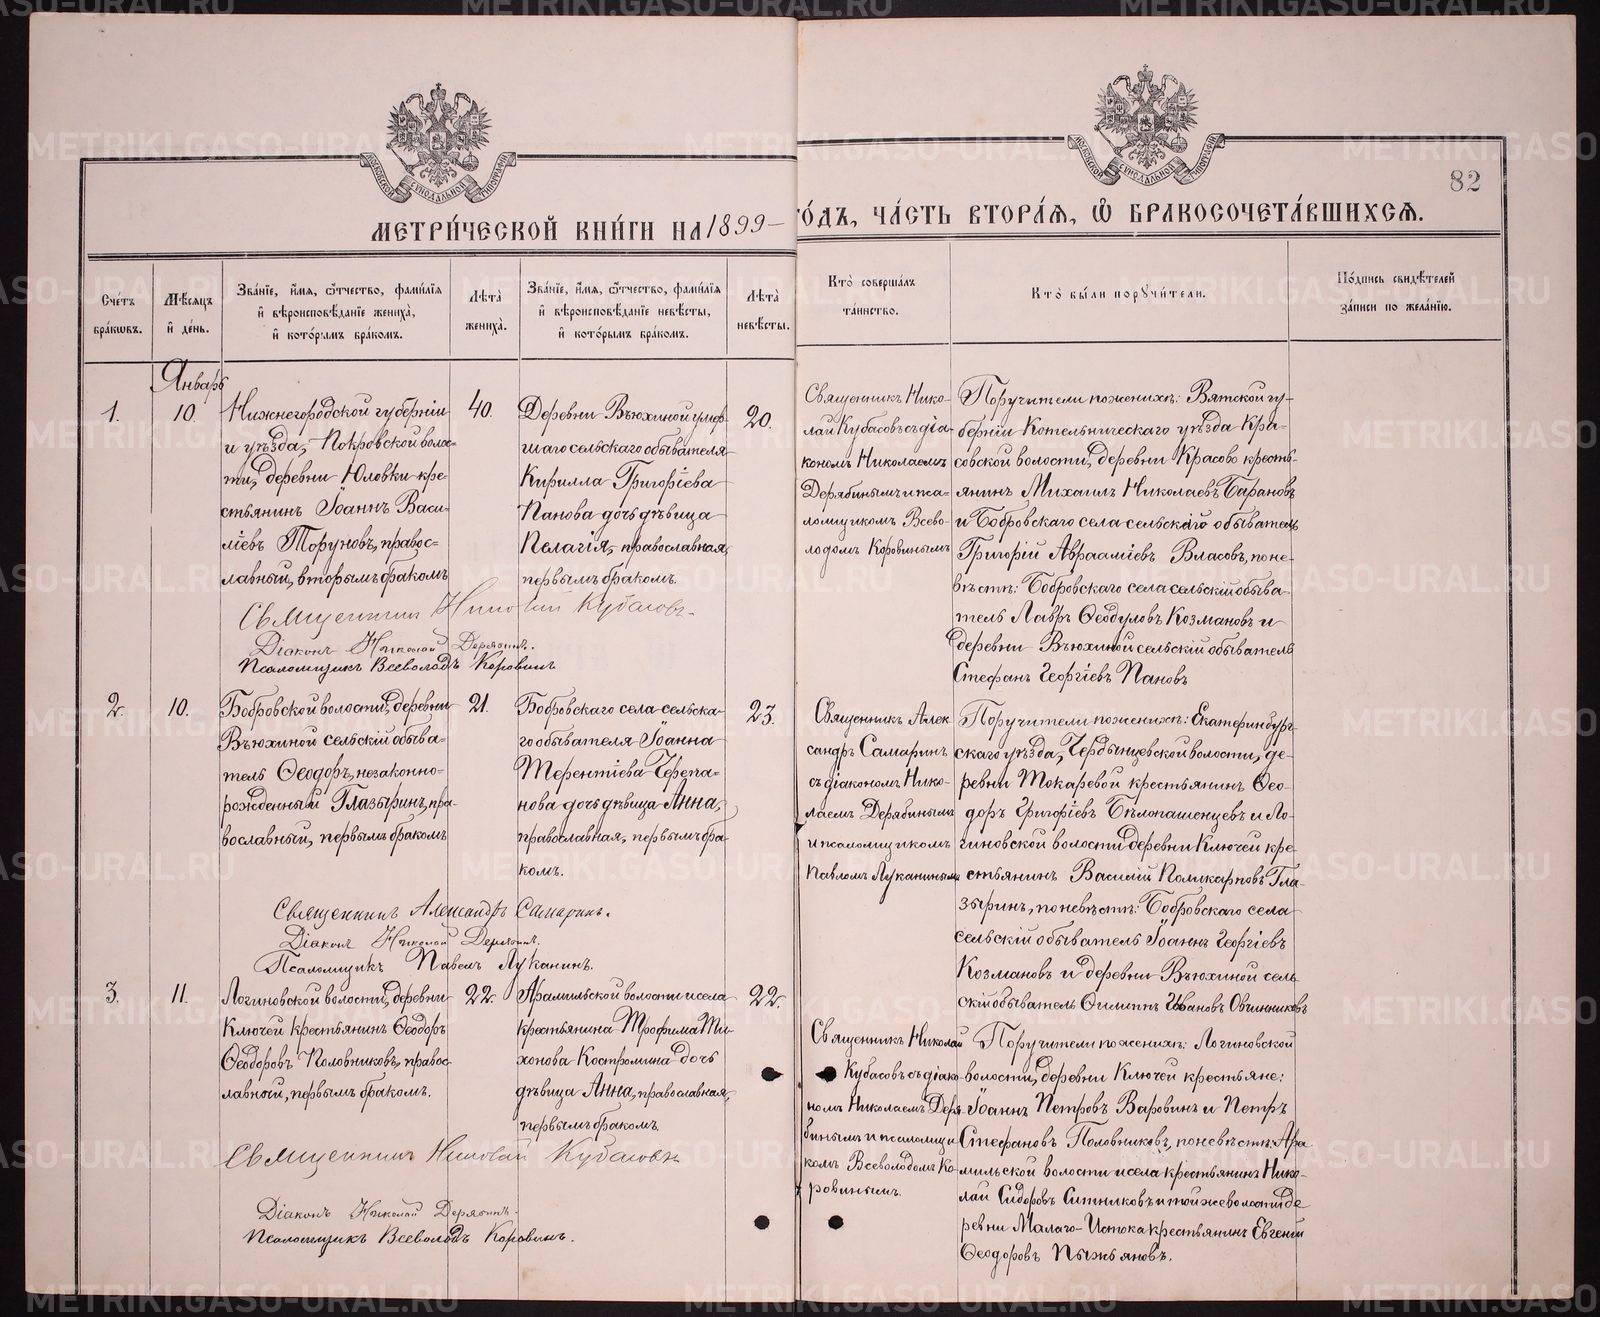 МОСКОВСКОЙ СУНОДАЛЬНОЙ ТИПОГРАФІИ
МОСКОВСКОЙ СУНОДАЛЬНОЙ ТИПОГРАФІИ
82
МЕТРИ́ЧЕСКОЙ КНИ́ГИ НА 1899 ГО́ДЪ, ЧА́СТЬ ВТОРА́Я, Ѽ БРАКОСОЧЕТА́ВШИХСЯ.
Сче́тъ
бра́кѡвъ.
Мѣ́сяцъ
и҆ де́нь.
Зва́нїе, и҆́мя, ѻ҆́тчество, фами́лїя
и҆ вѣроисповѣ́данїе жениха̀,
и҆ кото́рымъ бра́комъ.
Лѣ́та
жениха̀.
Зва́нїе, и҆́мя, ѻ҆́тчество, фами́лїя
и҆ вѣроисповѣ́данїе невѣ́сты,
и҆ кото́рымъ бра́комъ.
Лѣ́та
невѣ́сты.
Кто̀ соверша́лъ
та́инство.
Кто̀ бы́ли пору́чители.
По́дпись свидѣ́телей
за́писи по жела́нїю.
Январь
1.
10.
Нижнегородской губерніи
и уѣзда, Покровской волос-
ти, деревни Юловки кре-
стьянинъ Іоаннъ Васи-
ліевъ Торуновъ, правос-
лавный, вторымъ бракомъ
40.
Деревни Вьюхиной умер-
шаго сельскаго обывателя
Кирилла Григоріева
Панова дочь дѣвица
Пелагія, православная,
первымъ бракомъ.
20.
Священникъ Нико-
лай Кубасовъ съ діа-
кономъ Николаемъ
Дерябинымъ и пса-
ломщикомъ Всево-
лодомъ Коровинымъ
Поручители по женихѣ: Вятской гу-
берніи Котельническаго уѣзда Кра-
совской волости, деревни Красово кресть-
янинъ Михаилъ Николаевъ Барановъ
и Бобровскаго села сельскій обыватель
Григорій Авраамієвъ Власовъ, по не-
вѣстѣ: Бобровскаго села сельскій обыва-
тель Лавръ Ѳеодуловъ Козмановъ и
деревни Вьюхиной сельскій обыватель
Стефанъ Георгіевъ Пановъ
Священникъ Николай Кубасовъ
Діаконъ Николай Дерябинъ.
Псаломщикъ Всеволодъ Коровинъ
2.
10.
Бобровской волости, деревни
Вьюхиной сельскій обыва-
тель Ѳеодоръ, незаконно-
рожденный Глазыринъ, пра-
вославный, первымъ бракомъ
21.
Бобровскаго села сельска-
го обывателя Іоанна
Терентіева Черепа-
нова дочь дѣвица Анна,
православная, первымъ бра-
комъ.
23.
Священникъ Алек-
сандръ Самаринъ
съ діакономъ Нико-
лаемъ Дерябинымъ
и псаломщикомъ
Павломъ Луканинымъ
Поручители по женихѣ: Екатеринбург-
скаго уѣзда, Чердынцевской волости, де-
ревни Токаревой крестьянинъ Ѳео-
доръ Григоріевъ Бѣлопашенцевъ и Ло-
гиновской волости деревни Ключей кре-
стьянинъ Василій Поликарповъ Гла-
зыринъ, по невѣстѣ: Бобровскаго села
сельскій обыватель Іоаннъ Георгіевъ
Козмановъ и деревни Вьюхиной сель
скій обыватель Филиппъ Ивановъ Овчинниковъ
Священникъ Александръ Самаринъ.
Діаконъ Николай Дерябинъ.
Псаломщикъ Павелъ Луканинъ.
3.
11.
Логиновской волости, деревни
Ключей крестьянинъ Ѳеодоръ
Ѳеодоровъ Половниковъ, правос-
лавный, первымъ бракомъ.
22.
Арамильской волости и села
крестьянина Трофима Ти-
хонова Костромина дочь
дѣвица Анна, православная,
первымъ бракомъ.
22.
Священникъ Николай
Кубасовъ съ діако-
номъ Николаемъ Деря-
бинымъ и псаломщи-
комъ Всеволодомъ Ко-
ровинымъ.
Поручители по женихѣ: Логиновской
волости, деревни Ключей крестьяне:
Іоаннъ Петровъ Варовинъ и Петръ
Стефановъ Половниковъ, по невѣстѣ: Ара-
мильской волости и села крестьянинъ Нико-
лай Сидоровъ Ситниковъ и той же волости де
ревни Малаго-Истока крестьянинъ Евгеній
Ѳеодоровъ Пыжьяновъ.
Священникъ Николай Кубасовъ
Діаконъ Николай Дерябинъ.
Псаломщикъ Всеволодъ Коровинъ.
METRIKI.GASO-URAL.RU